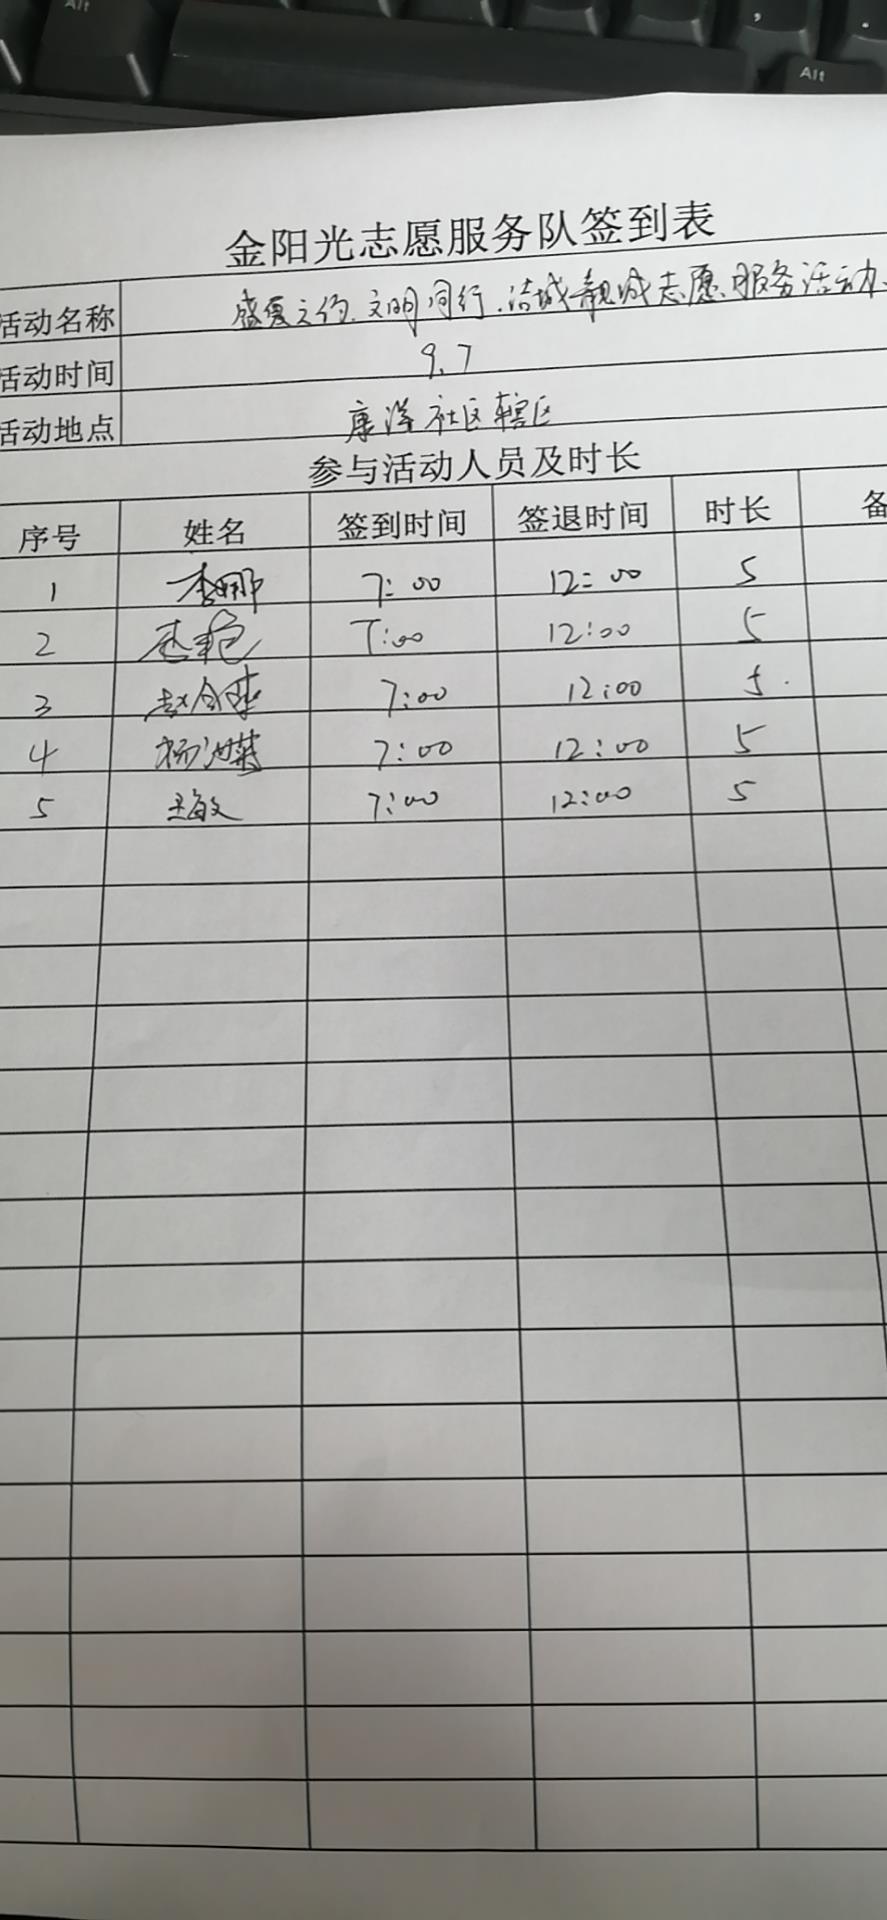 Alt
Alt
金阳光志愿服务队签到表
活动名称 盛夏之约.文明同行.洁城靓城志愿服务活动.
活动时间 9.7
活动地点 康泽社区辖区
参与活动人员及时长
序号 姓名 签到时间 签退时间 时长 备
1 李娜 7:00 12:00 5
2 7:00 12:00 5
3 7:00 12:00 5
4 7:00 12:00 5
5 王敏 7:00 12:00 5